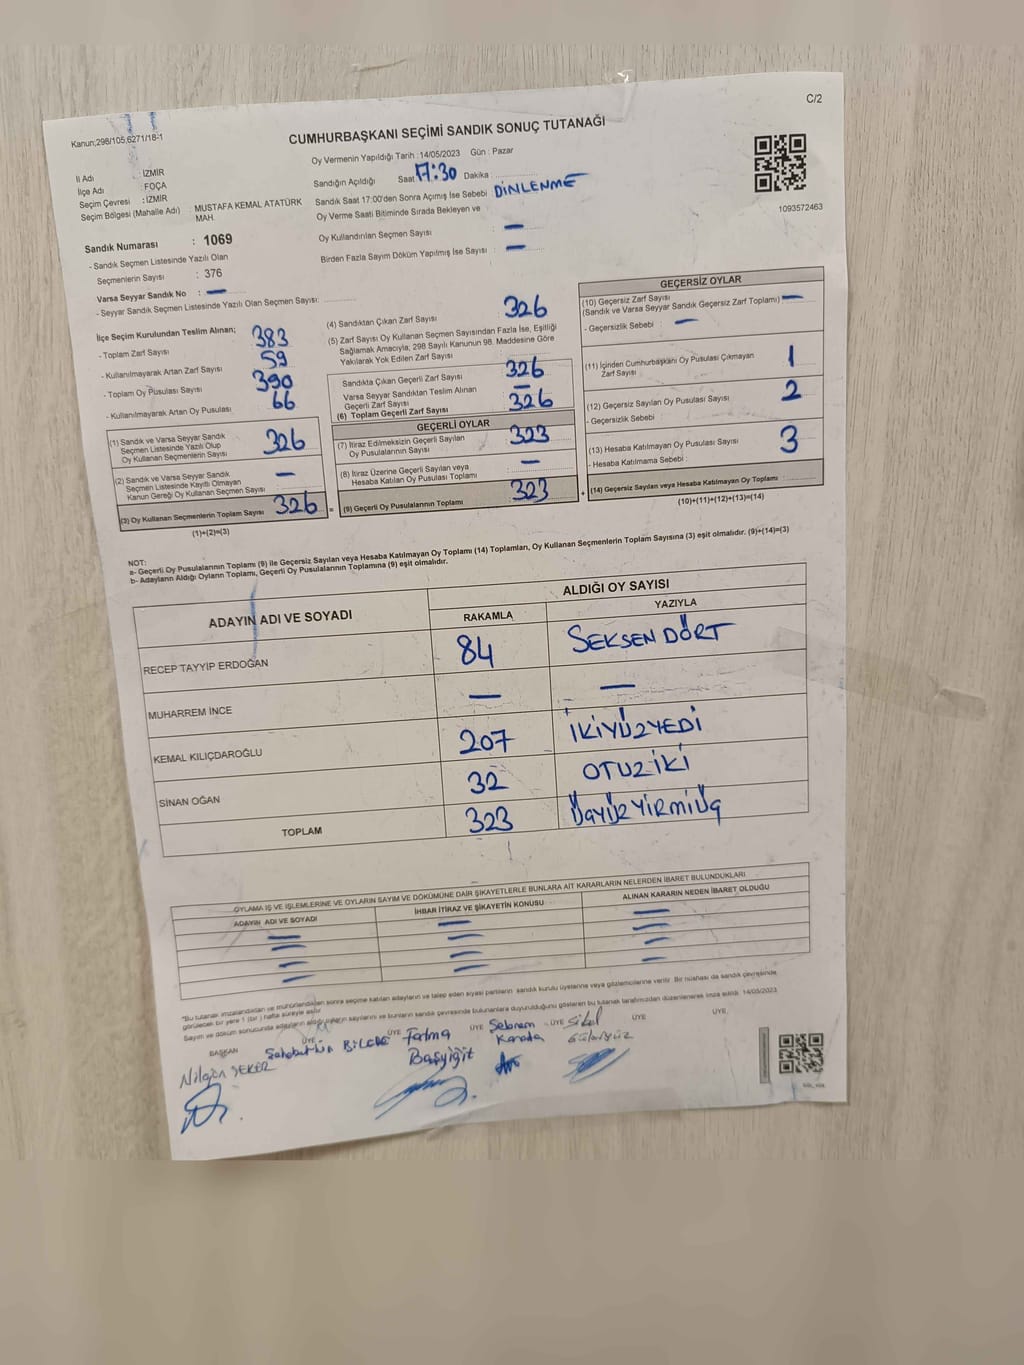 C/2
Kanun;298/105,6271/18-1
CUMHURBAŞKANI SEÇİMİ SANDIK SONUÇ TUTANAĞI
Oy Vermenin Yapıldığı Tarih : 14/05/2023 Gün : Pazar
İl Adı : İZMİR
İlçe Adı : FOÇA
Seçim Çevresi : İZMİR
Seçim Bölgesi (Mahalle Adı) : MUSTAFA KEMAL ATATÜRK
MAH.
Sandığın Açıldığı Saat 17:30 Dakika :
Sandık Saat 17:00'den Sonra Açımış İse Sebebi DİNLENME
Oy Verme Saati Bitiminde Sırada Bekleyen ve
Oy Kullandırılan Seçmen Sayısı : —
Birden Fazla Sayım Döküm Yapılmış İse Sayısı : —
1093572463
Sandık Numarası : 1069
- Sandık Seçmen Listesinde Yazılı Olan
Seçmenlerin Sayısı : 376
Varsa Seyyar Sandık No : —
- Seyyar Sandık Seçmen Listesinde Yazılı Olan Seçmen Sayısı:
İlçe Seçim Kurulundan Teslim Alınan;
- Toplam Zarf Sayısı 383
- Kullanılmayarak Artan Zarf Sayısı 59
- Toplam Oy Pusulası Sayısı 390
- Kullanılmayarak Artan Oy Pusulası 66
(1) Sandık ve Varsa Seyyar Sandık
Seçmen Listesinde Yazılı Olup
Oy Kullanan Seçmenlerin Sayısı 326
(2) Sandık ve Varsa Seyyar Sandık
Seçmen Listesinde Kayıtlı Olmayan
Kanun Gereği Oy Kullanan Seçmen Sayısı —
(3) Oy Kullanan Seçmenlerin Toplam Sayısı 326
(1)+(2)=(3)
(4) Sandıktan Çıkan Zarf Sayısı 326
(5) Zarf Sayısı Oy Kullanan Seçmen Sayısından Fazla İse, Eşitliği
Sağlamak Amacıyla, 298 Sayılı Kanunun 98. Maddesine Göre
Yakılarak Yok Edilen Zarf Sayısı :
Sandıkta Çıkan Geçerli Zarf Sayısı 326
Varsa Seyyar Sandıktan Teslim Alınan
Geçerli Zarf Sayısı —
(6) Toplam Geçerli Zarf Sayısı 326
GEÇERLİ OYLAR
(7) İtiraz Edilmeksizin Geçerli Sayılan
Oy Pusulalarının Sayısı 323
(8) İtiraz Üzerine Geçerli Sayılan veya
Hesaba Katılan Oy Pusulası Toplamı —
= (9) Geçerli Oy Pusulalarının Toplamı 323
GEÇERSİZ OYLAR
(10) Geçersiz Zarf Sayısı
(Sandık ve Varsa Seyyar Sandık Geçersiz Zarf Toplamı) —
- Geçersizlik Sebebi : —
(11) İçinden Cumhurbaşkanı Oy Pusulası Çıkmayan
Zarf Sayısı 1
(12) Geçersiz Sayılan Oy Pusulası Sayısı 2
- Geçersizlik Sebebi :
(13) Hesaba Katılmayan Oy Pusulası Sayısı 3
- Hesaba Katılmama Sebebi :
+ (14) Geçersiz Sayılan veya Hesaba Katılmayan Oy Toplamı :
(10)+(11)+(12)+(13)=(14)
NOT:
a- Geçerli Oy Pusulalarının Toplamı (9) ile Geçersiz Sayılan veya Hesaba Katılmayan Oy Toplamı (14) Toplamları, Oy Kullanan Seçmenlerin Toplam Sayısına (3) eşit olmalıdır. (9)+(14)=(3)
b- Adayların Aldığı Oyların Toplamı, Geçerli Oy Pusulalarının Toplamına (9) eşit olmalıdır.
ADAYIN ADI VE SOYADI ALDIĞI OY SAYISI
RAKAMLA YAZIYLA
RECEP TAYYİP ERDOĞAN 84 SEKSENDÖRT
MUHARREM İNCE — —
KEMAL KILIÇDAROĞLU 207 İKİYÜZYEDİ
SİNAN OĞAN 32 OTUZİKİ
TOPLAM 323 ÜçYÜZYİRMİÜç
OYLAMA İŞ VE İŞLEMLERİNE VE OYLARIN SAYIM VE DÖKÜMÜNE DAİR ŞİKAYETLERLE BUNLARA AİT KARARLARIN NELERDEN İBARET BULUNDUKLARI
ADAYIN ADI VE SOYADI İHBAR İTİRAZ VE ŞİKAYETİN KONUSU ALINAN KARARIN NEDEN İBARET OLDUĞU
— — —
— — —
— — —
— — —
*Bu tutanak imzalandıktan ve mühürlendikten sonra seçime katılan adayların ve talep eden siyasi partilerin sandık kurulu üyelerine veya gözlemcilerine verilir. Bir nüshası da sandık çevresinde
görülecek bir yere 1 (bir) hafta süreyle asılır.
Sayım ve döküm sonucunda adayların aldığı oyların sayılarını ve bunların sandık çevresinde bulunanlara duyurulduğunu gösteren bu tutanak tarafımızdan düzenlenerek imza edildi. 14/05/2023
BAŞKAN ÜYE ÜYE ÜYE ÜYE ÜYE ÜYE
Nilgün ŞEKER
Fatma
Başyiğit
Sibel